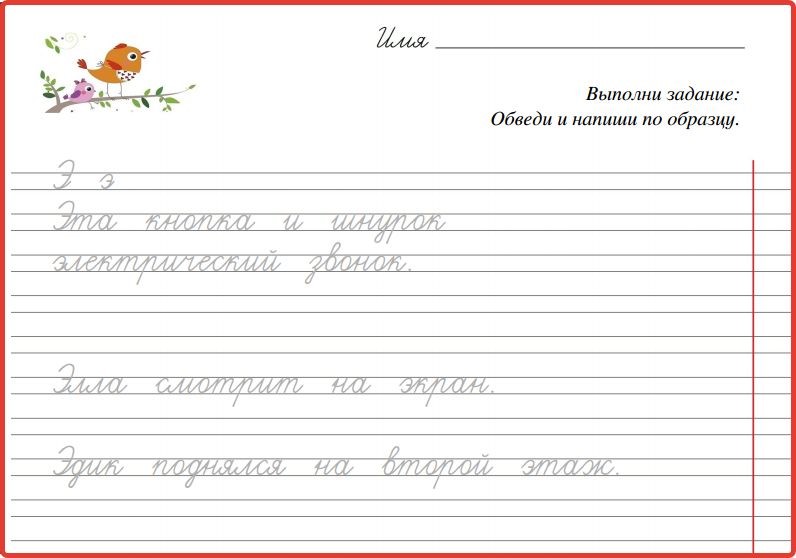 Имя
Выполни задание:
Обведи и напиши по образцу.
Э э
Эта кнопка и шнурок
электрический звонок.
Элла смотрит на экран.
Эдик поднялся на второй этаж.